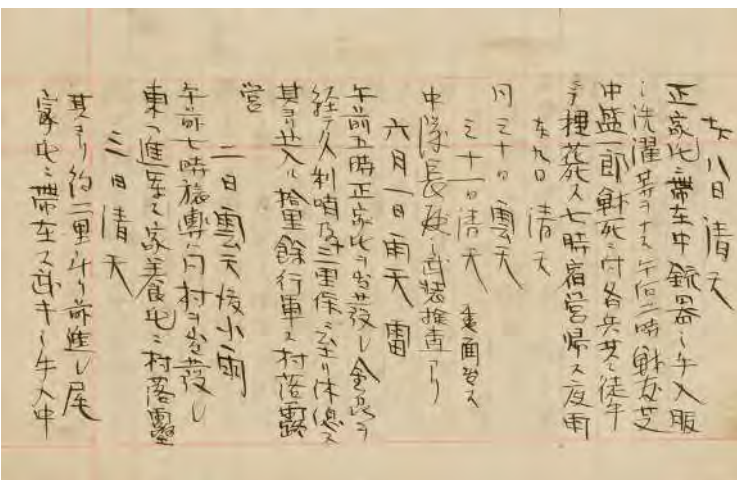 廿八日 清天
正家屯ニ滞在中銃器ノ手入服
ノ洗濯等ヲナス午后二時戦友芝
中盛一郎戦死ニ付各兵共ニ徒歩
テ埋葬ス七時宿営帰ス夜雨
廿九日 清天
同三十日 曇天
三十一日清天
中隊長殿ノ武装検査アリ
六月一日雨天 雷
午前五時正家屯ヲ出発シ金
経テ八刹哨及三里保ニ至リ休憩ス
其ヨリ共ニ拾里餘行軍ス村落露
営
二日 雲天後小雨
午前七時旅興ノ同村ヲ出発シ
東ヘ進軍ス家美食屯ニ村落露
三日清天
其ヨリ約二里斗リ前進シ尾
家屯ニ滞在ス武キノ手入中